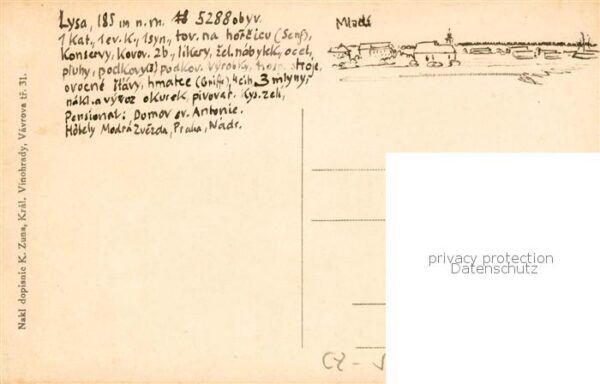 Lysa, 185 m n. m. 5288 obyv.
1 Kat., 1 ev. K., 1 syn., tov. na hořčicu (Senf),
Konservy, kovov. zb., likery, žel. nábytek, ocel,
pluhy, podkovy(3) podkov. výrobky, hosp. stroje,
ovocné šťávy, hmatce (Griffe), 4 cih., 3 mlýny,
nákl. a vývoz okurek, pivovar. Kys. zelí,
Pensionat: Domov sv. Antonie.
Hôtely Modrá Zvězda, Praha, Nádr.
Mladá
Nakl dopisnic K. Zuna, Král. Vinohrady, Vávrova tř. 31.
privacy protection
Datenschutz
CZ -